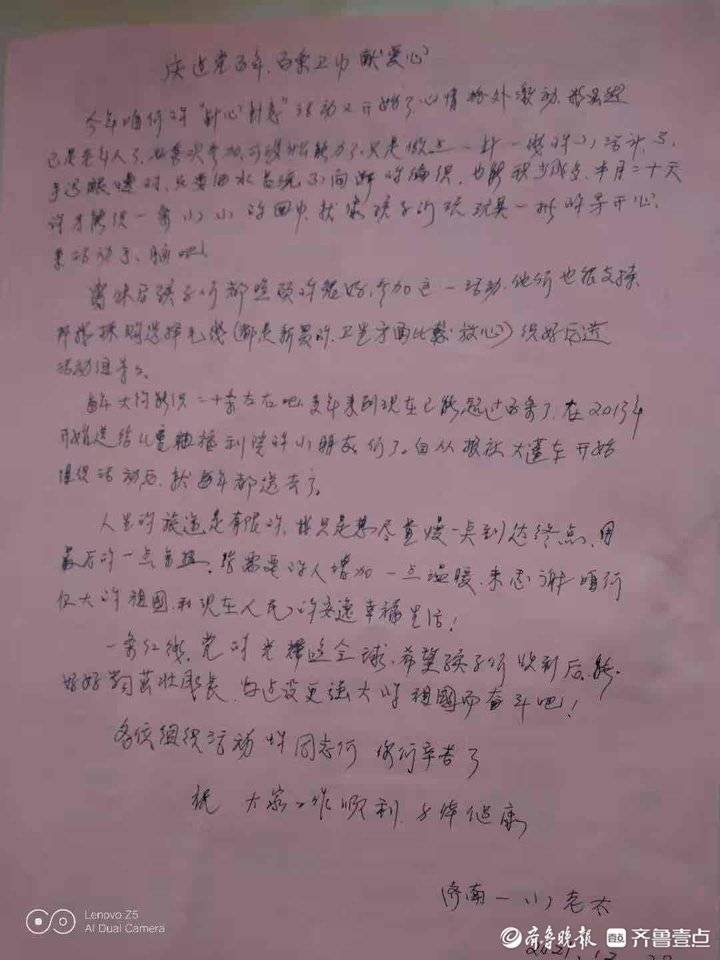 庆建党百年,百条卫巾献爱心
今年咱们的"针心针意"活动又开始了心情格外激动,我虽然
已是老年人了,也喜次参加,可没什么能力了,只是做点一针一线的小活计,手
手迟眼慢时,只要细水长流不间断的编织,也能积少成多,半月二十天
才能织一条小小的围巾,就像孩子们玩玩具一样的开心,
来活动手、脑吧!
身体后孩子们都照顾的很好,参加这一活动,他们也很支持,
帮我采购选择毛线(都是新买的,卫生方面比较放心)织好后送
活动组等。
每年大约能织二十条左右吧,多年来到现在已能超过百条了,在2013年
开始送给儿童福利院的小朋友们了。自从报社大蓬车开始
组织活动后,就每年都送去了。
人生的旅途是有限的,我只是想尽量慢一点到达终点,用
最后的一点余热,给需要的人增加一点温暖,来感谢咱们
伟大的祖国,和现在人民的安逸幸福生活!
一条红线,党的光辉 全球,希望孩子们收到后,能
好好 茁壮成长,为建设更强大的祖国而奋斗吧!
各位组织活动的同志们 你们辛苦了
祝 大家工作顺利,身体健康
济南一小老太
2021.12.
Lenovo Z5
AI Dual Camera
齐鲁晚报 齐鲁壹点